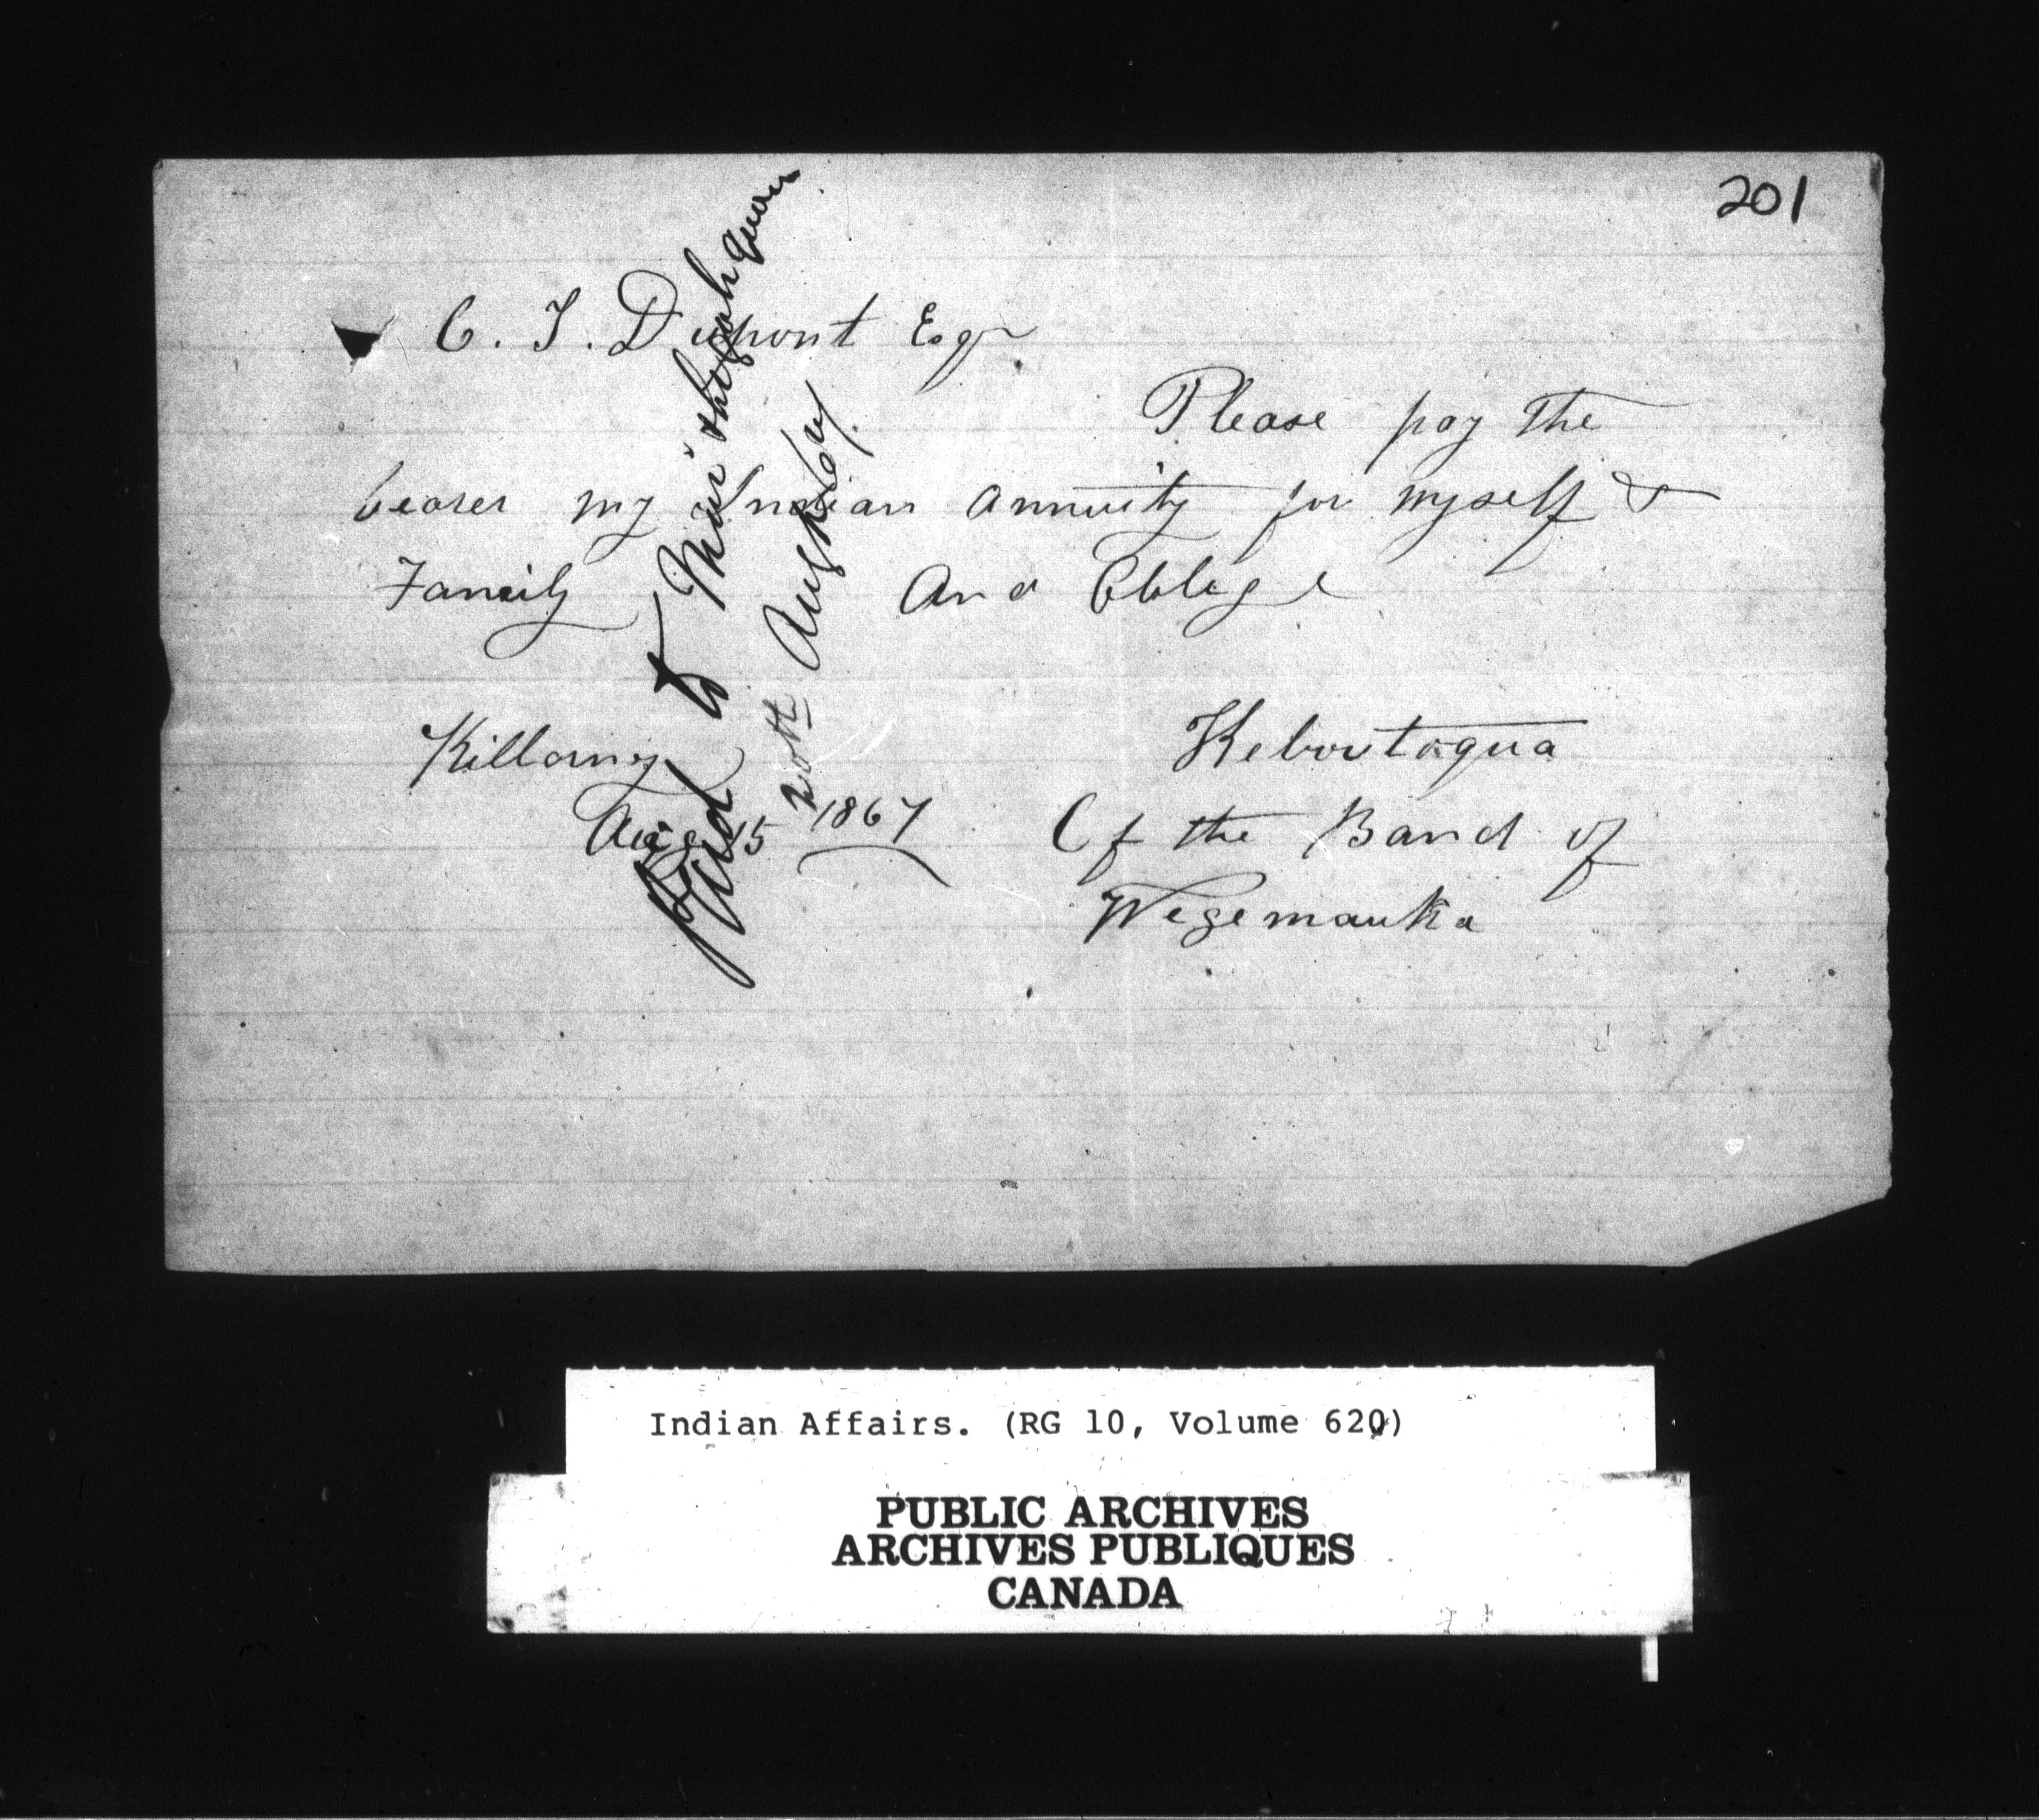 201
C. T. Dupont Esqr
Please pay the
bearer my Indian annuity for myself &
Family And Oblige
Killarny Kebeutaqua
Aug 15 1867 Of the Band of
Wegemauka
Paid to
20th Aug 1867.
Indian Affairs. (RG 10, Volume 620)
PUBLIC ARCHIVES
ARCHIVES PUBLIQUES
CANADA